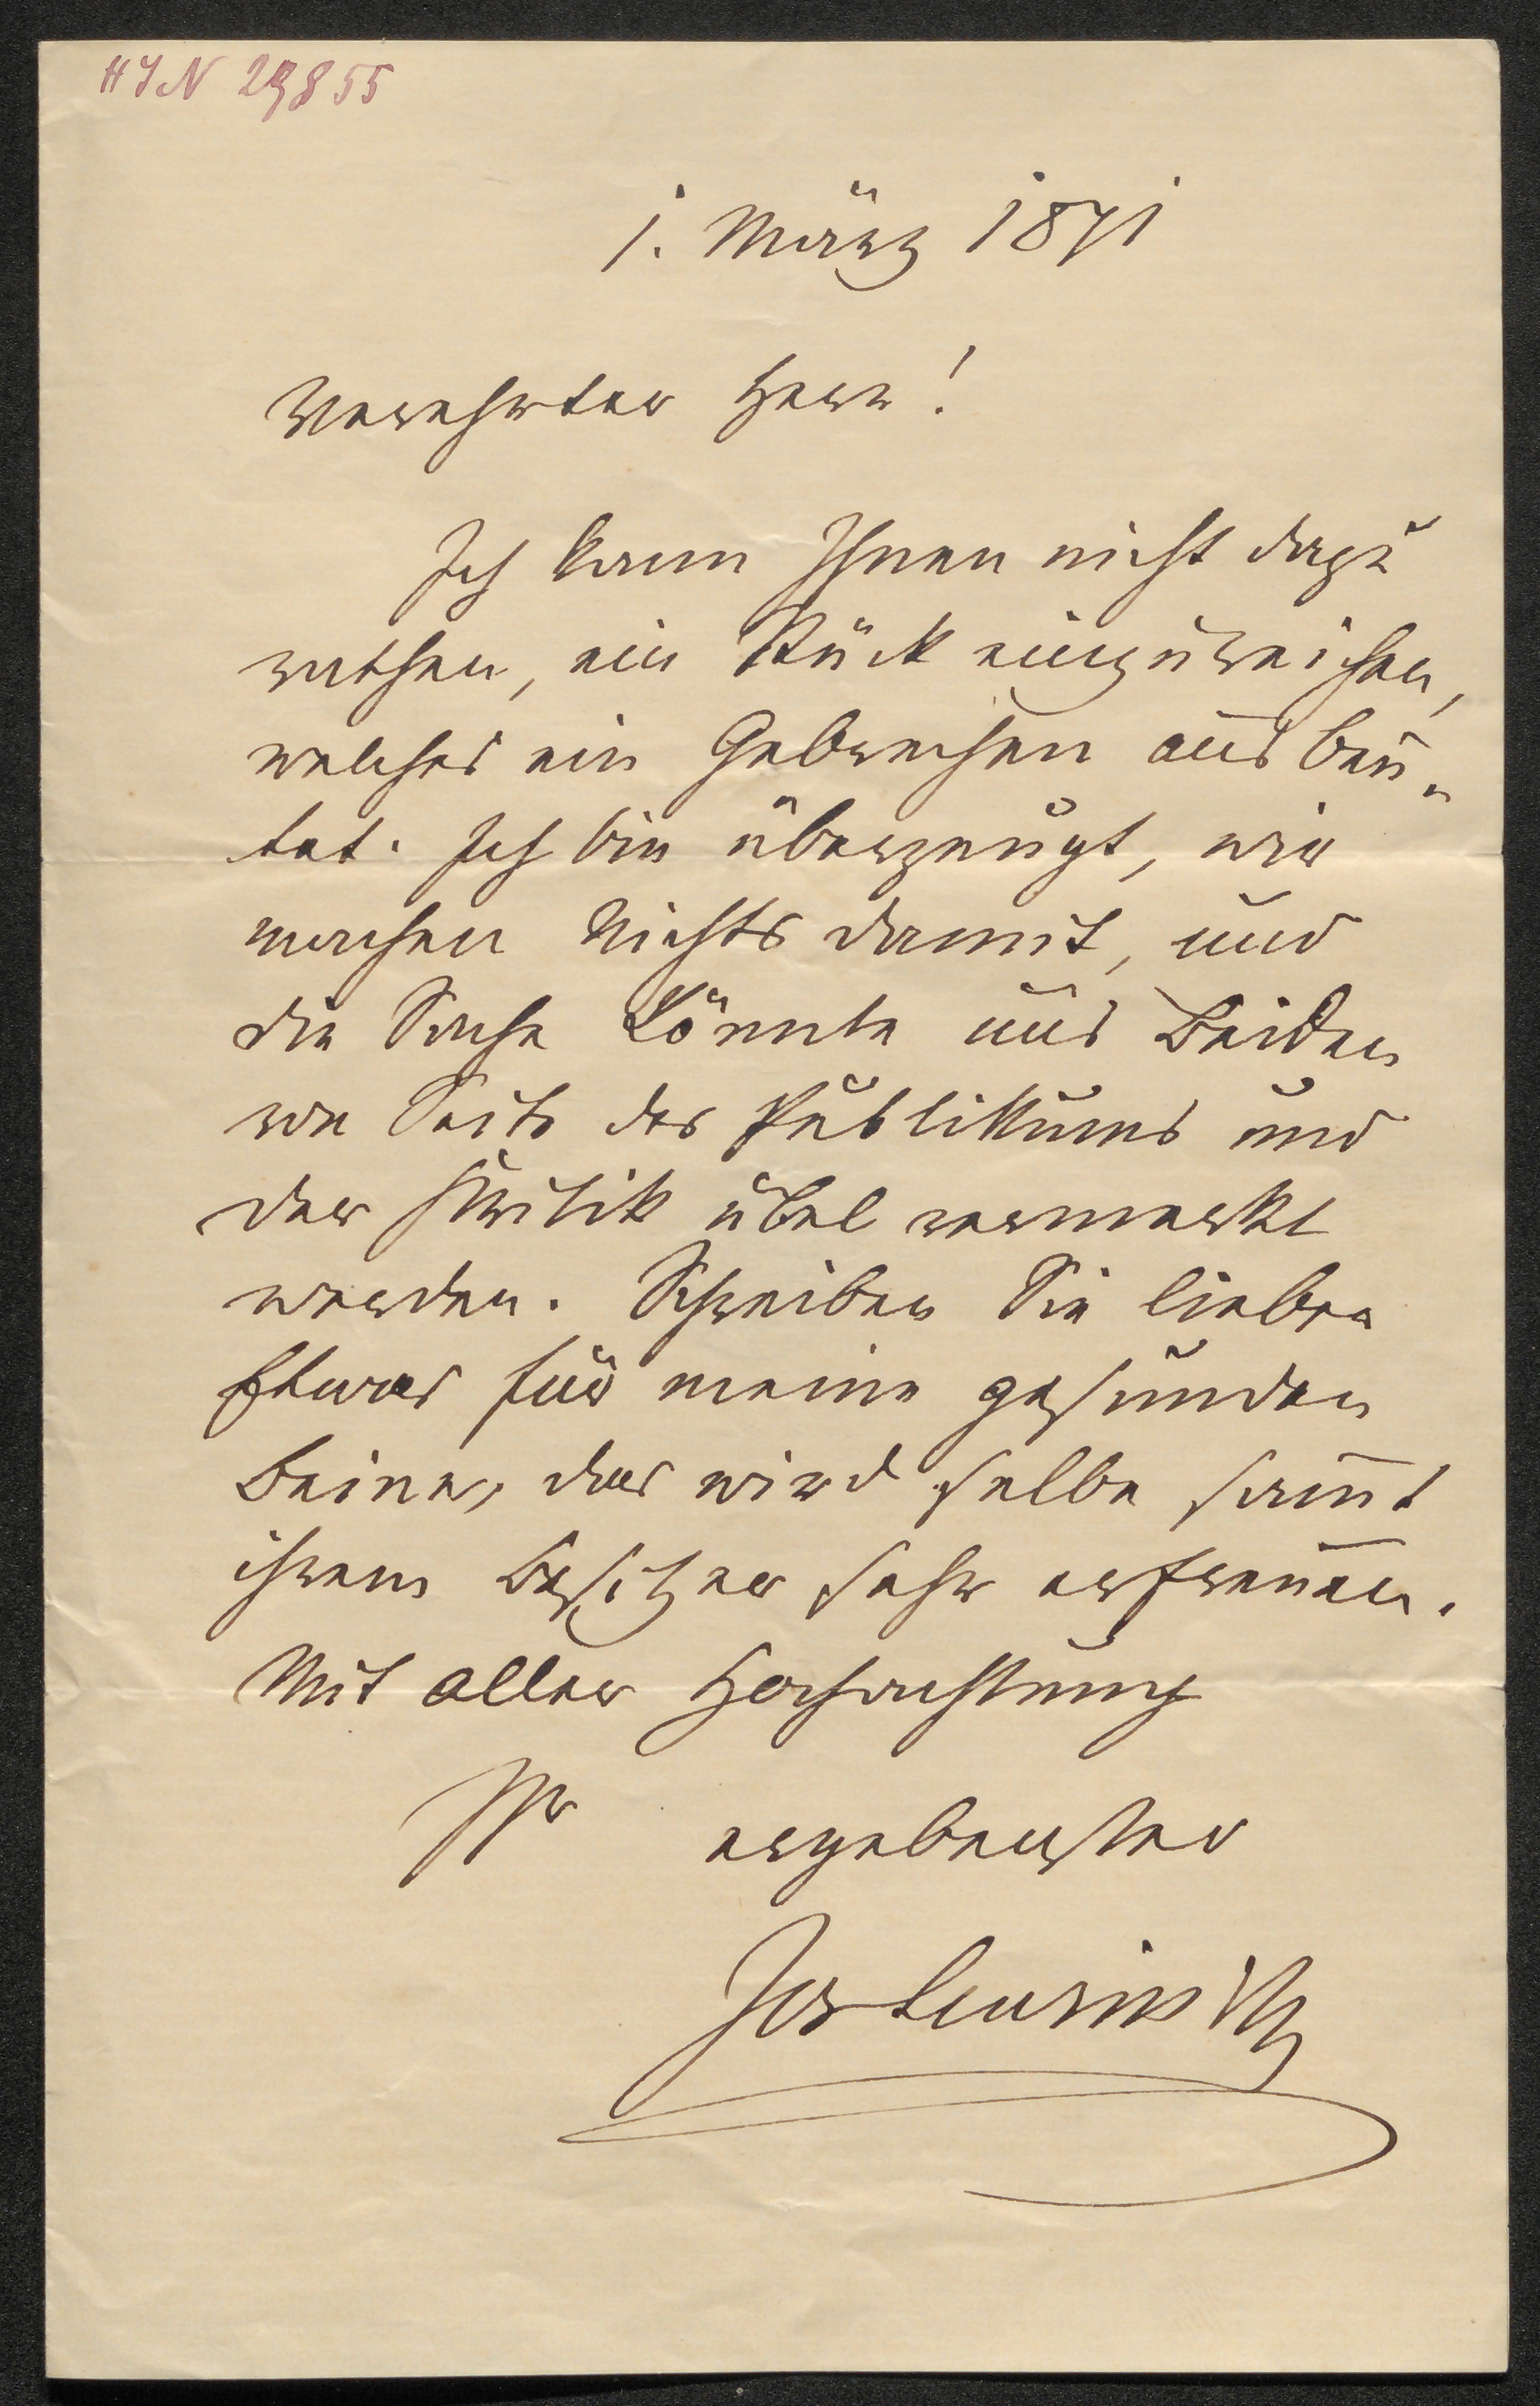 HIN 29855
1. März 1871
Verehrter Herr!
Ich kann Ihnen nicht dazu
rathen, ein Stück einzureichen,
welches ein Gebrechen ausbeu-
tet. Ich bin überzeugt, wir
machen Nichts damit, und
die Sache könnte uns Beiden
von Seite des Publikums und
der Kritik übel vermerkt
werden. Schreiben Sie lieber
Etwas für meine gesunden
Beine, das wird selbe sammt
ihrem Besitzer sehr erfreuen.
Mit aller Hochachtung
Ihr ergebenster
Jos Lewinsky